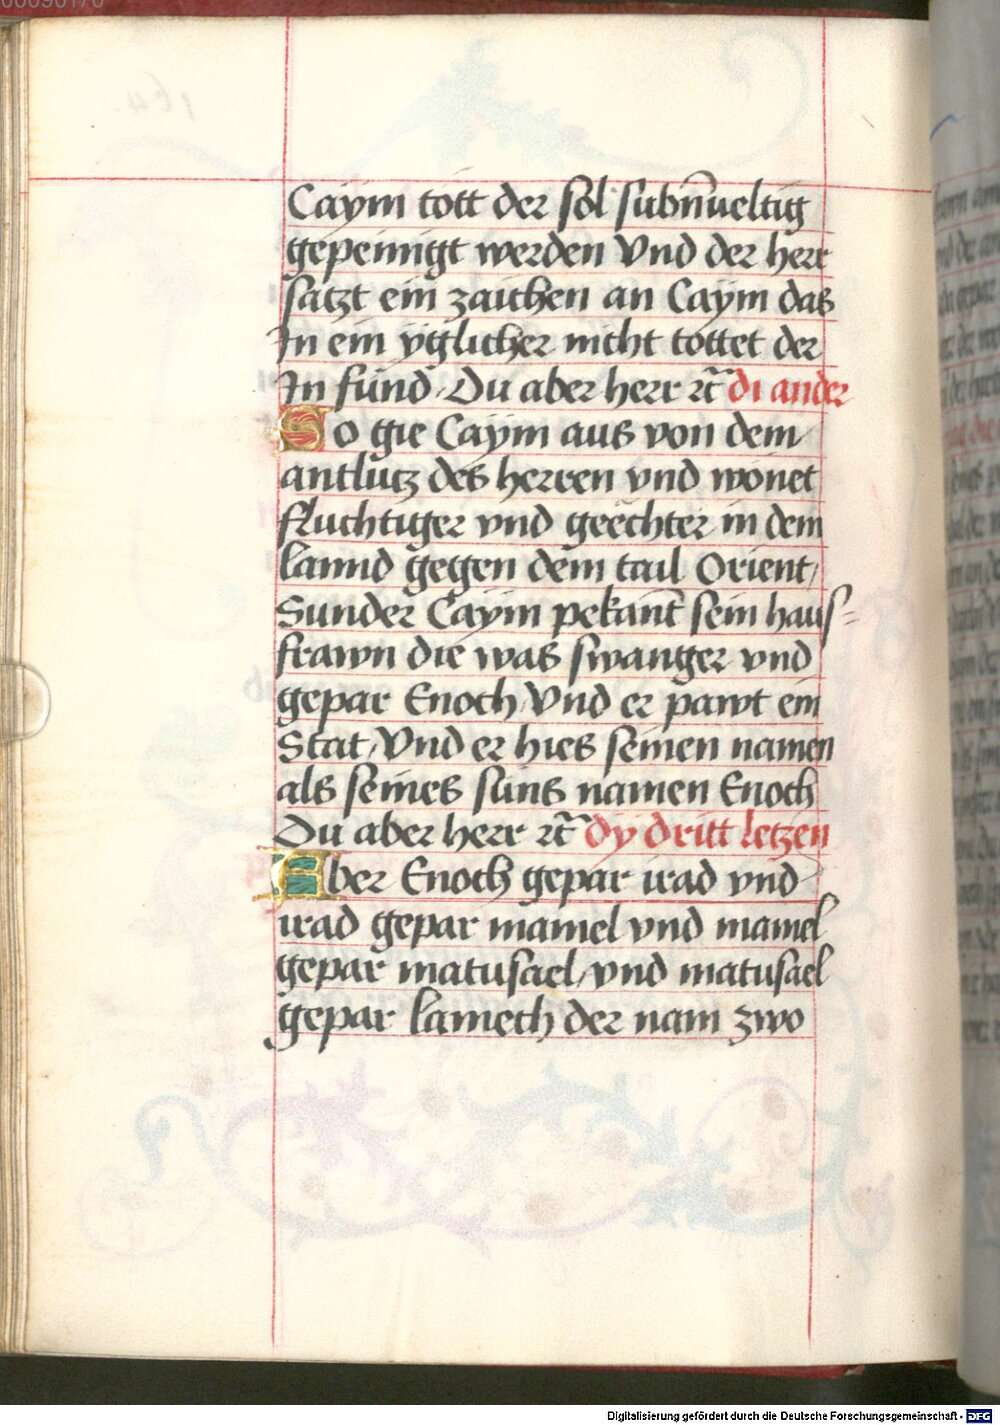 Caym tott der sol subn̄ueltig
gepeinigt werden Vnd der herr
satzt ein zaichen an Caym das
In ein yglicher nicht tottet der
In fund. Du aber herr ꝛc̄ di ander
So gie Caym aus von dem
antlutz des herren vnd wonet
fluchtiger vnd geechter in dem
lannd gegen dem tail Orient/
Sunder Caym pekant̄ sein haus=
frawn die was swanger vnd
gepar Enoch/ Vnd er pawt ein
Stat/ Vnd er hies seinen namen
als seines suns namen Enoch
Du aber herr ꝛc̄ dy dritt letzen
Aber Enoch gepar irad vnd
irad gepar mamel vnd mamel
gepar matusael/ vnd matusael
gepar lamech der nam zwo
Digitalisierung gefördert durch die Deutsche Forschungsgemeinschaft - DFG